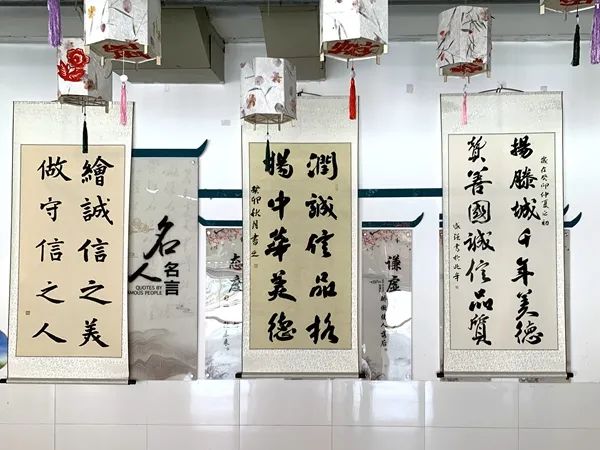 繪誠信之美
做守信之人
名人
名言
QUOTES BY
AMOUS PEOPLE
潤誠信品格
中華美德
癸卯秋月書之
谦虚
歲在癸卯仲夏之初
揚滕城千年美德
善國誠信品質